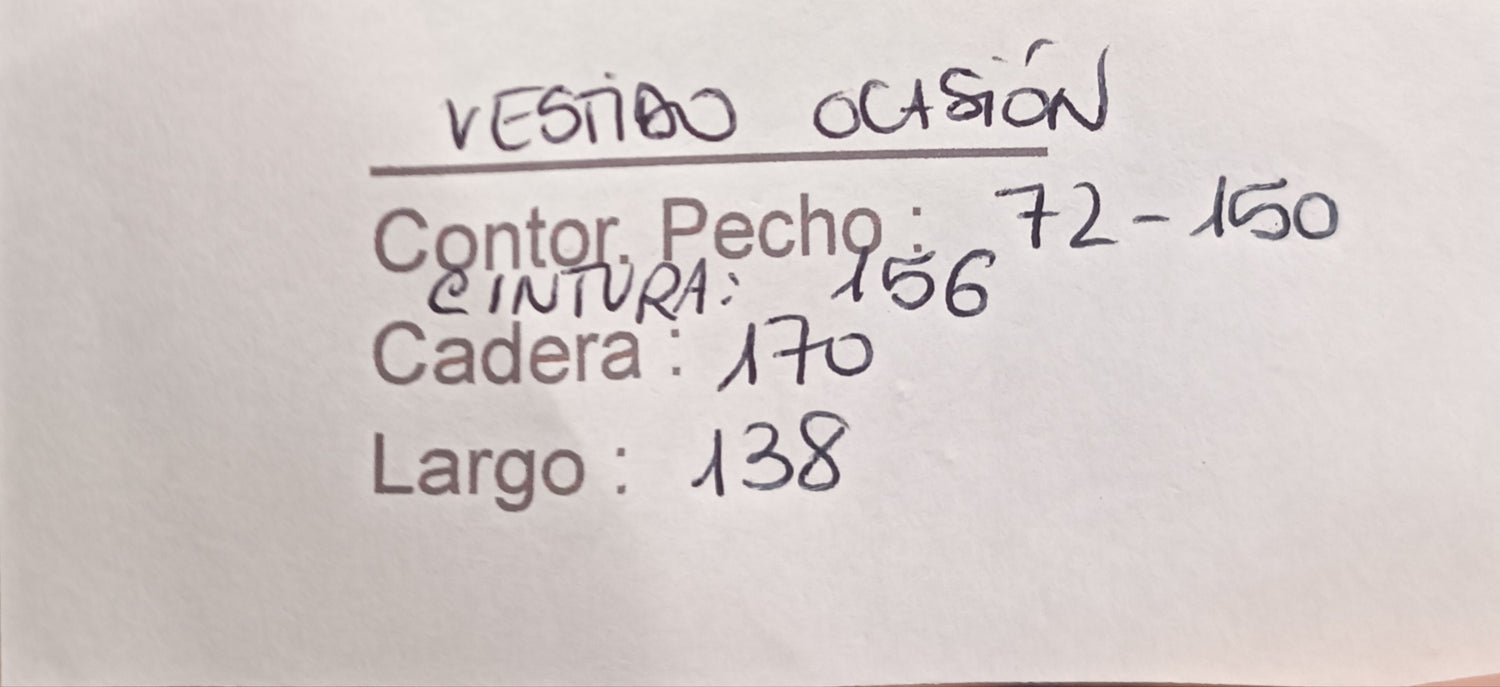 VESTIDO OCASIÓN
Contor. Pecho : 72-150
CINTURA: 156
Cadera : 170
Largo : 138